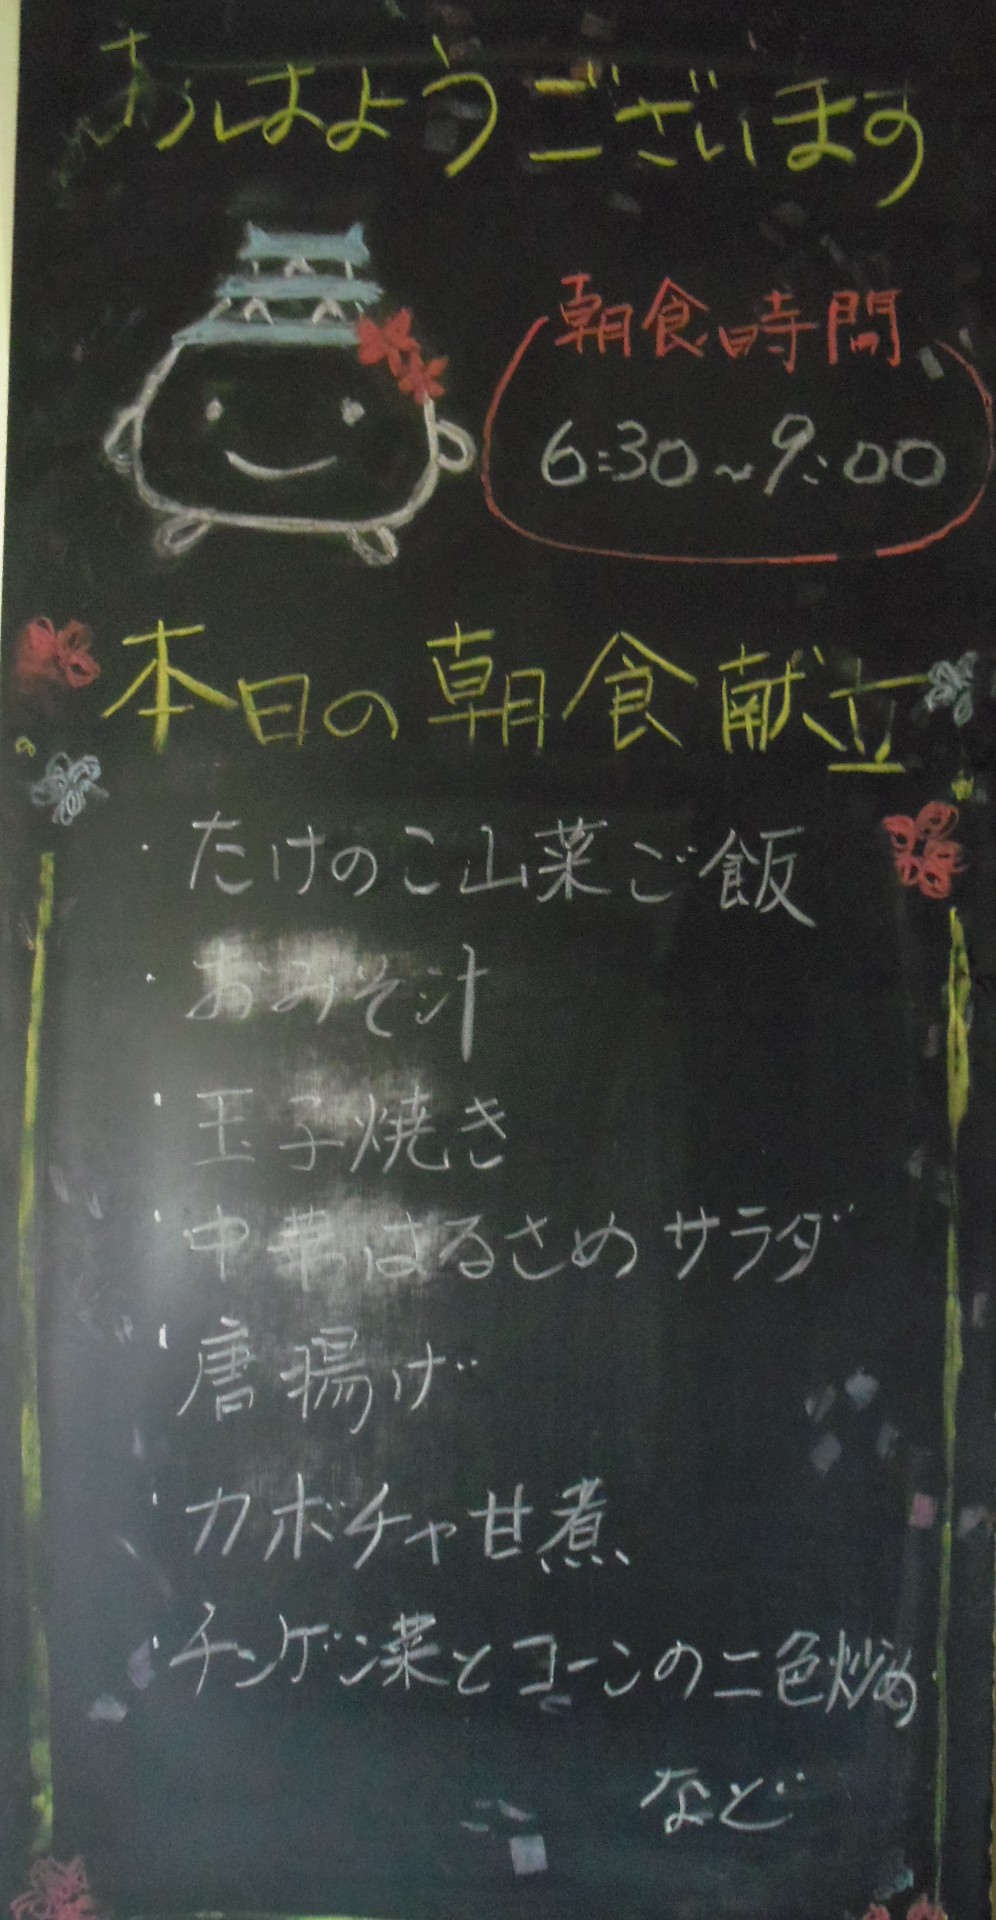 おはようございます
朝食時間
6:30~9:00
本日の朝食献立
・たけのこ山菜ご飯
・おみそ汁
・玉子焼き
・中華はるさめサラダ
・唐揚げ
・カボチャ甘煮
・チンゲン菜とコーンの二色炒め
など